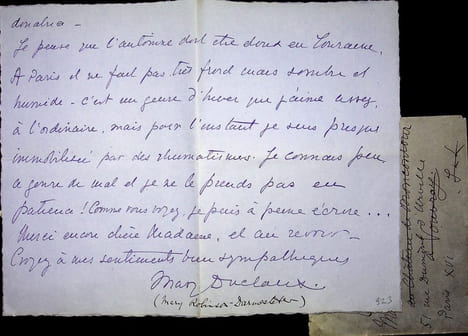 donatrice –
Je pense que l'automne doit être doux en Touraine.
A Paris il ne fait pas très froid mais sombre et
humide – c'est un genre d'hiver que j'aime assez,
à l'ordinaire, mais pour l'instant je suis presque
immobilisée par des rhumatismes. Je connais peu
ce genre de mal et je ne le prends pas en
patience! Comme vous voyez, je puis à peine écrire...
Merci encore chère Madame, et au revoir –
Croyez à mes sentiments bien sympathiques
Mary Duclaux.
(Mary Robinson-Darmesteter)
923
Château de
51 rue
Paris XVI